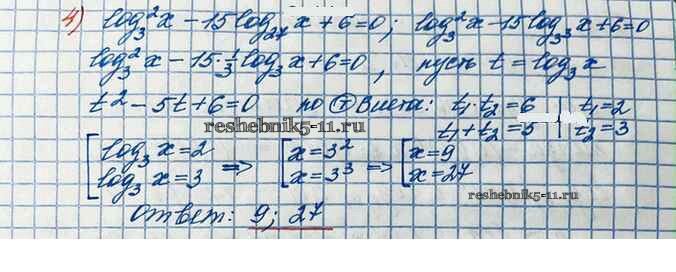 4) log₃²x − 15log₂₇x + 6 = 0; log₃²x − 15log₃³x + 6 = 0
log₃²x − 15·1/3 log₃x + 6 = 0, пусть t = log₃x
t² − 5t + 6 = 0 по Т Виета: t₁·t₂ = 6 | t₁ = 2
t₁ + t₂ = 5 | t₂ = 3
reshebnik5-11.ru
[log₃x = 2 => [x = 3² => [x = 9
log₃x = 3 x = 3³ x = 27
reshebnik5-11.ru
Ответ: 9; 27